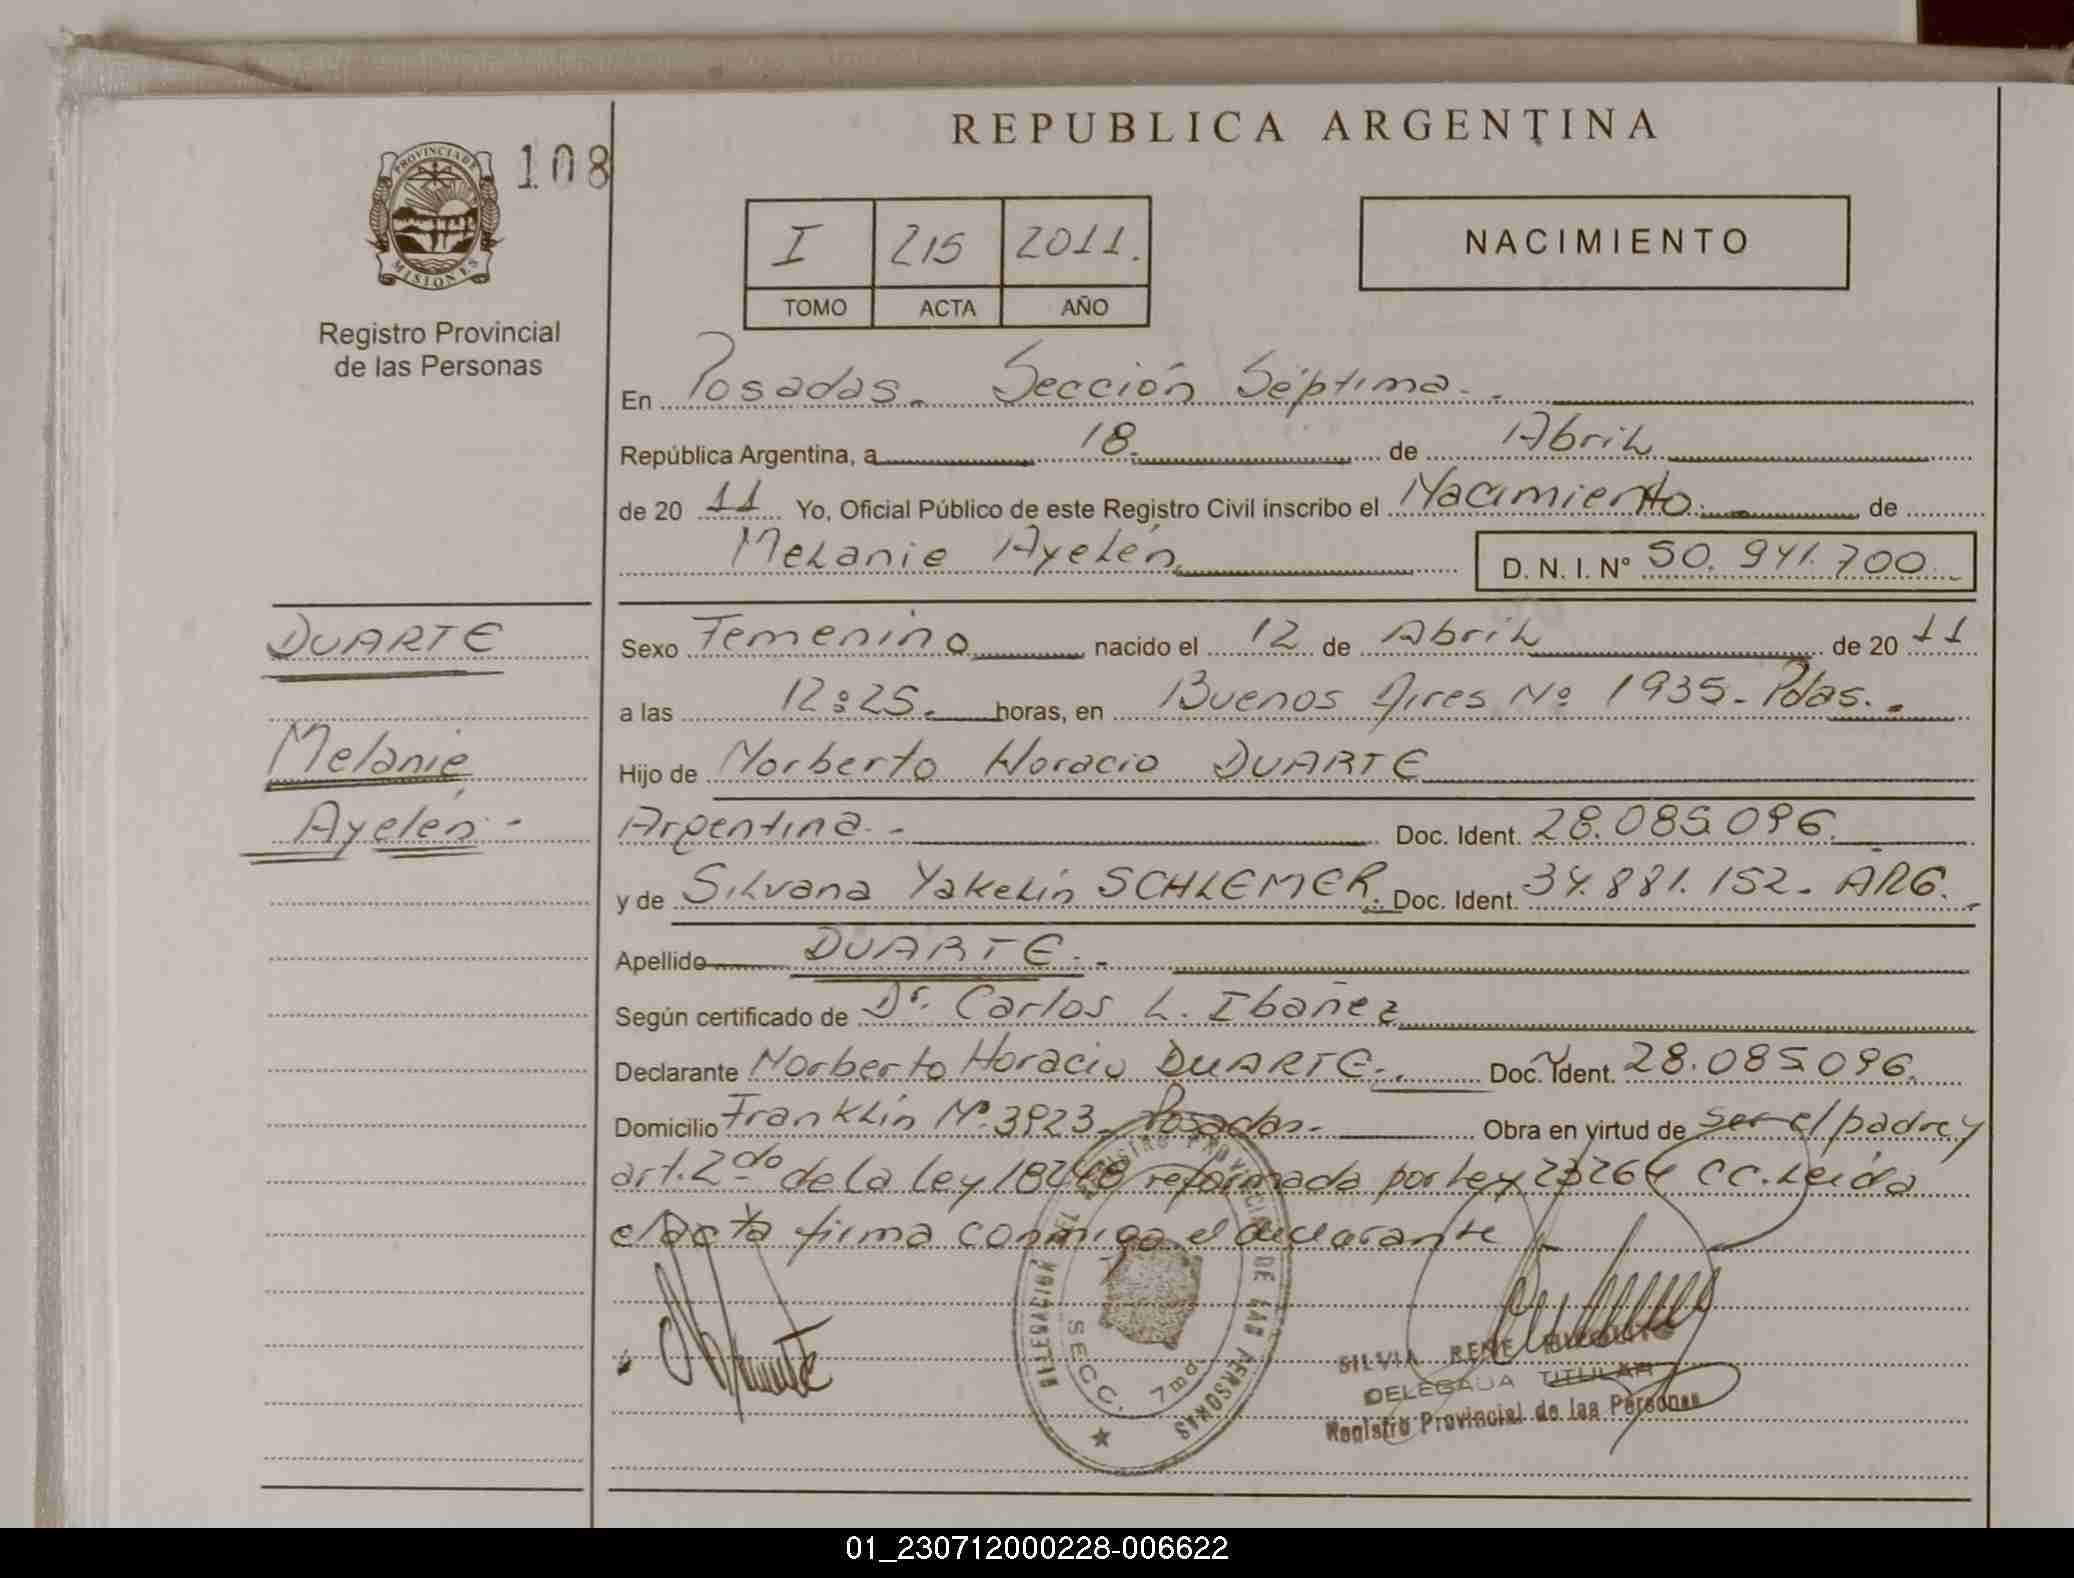 REPUBLICA ARGENTINA
108
PROVINCIA DE
MISIONES
Registro Provincial
de las Personas
I 215 2011.
TOMO ACTA AÑO
NACIMIENTO
En Posadas. Sección Séptima.
República Argentina, a 18. de Abril
de 20 11 Yo, Oficial Público de este Registro Civil inscribo el Nacimiento. de
Melanie Ayelén D. N. I. N° 50.941.700
DUARTE
Melanie
Ayelén -
Sexo Femenino nacido el 12 de Abril de 20 11
a las 12:25. horas, en Buenos Aires Nº 1935 - Pdas.
Hijo de Norberto Horacio DUARTE
Argentina. - Doc. Ident. 28.085.096.
y de Silvana Yakelin SCHLEMER. Doc. Ident. 34.881.152. ARG.
Apellido DUARTE. -
Según certificado de Dr. Carlos L. Ibañez
Declarante Norberto Horacio DUARTE. Doc. Ident. 28.085.096.
Domicilio Franklin Nº 3923 - Posadas. Obra en virtud de ser el padre y
art. 2do de la ley 18248 reformada por ley 23264 CC. Leida
el Acta firma conmigo el declarante
DELEGACION DEL REGISTRO PROVINCIAL DE LAS PERSONAS
SECC. 7ma
SILVIA RENE
DELEGADA TITULAR
Registro Provincial de las Personas
01_230712000228-006622